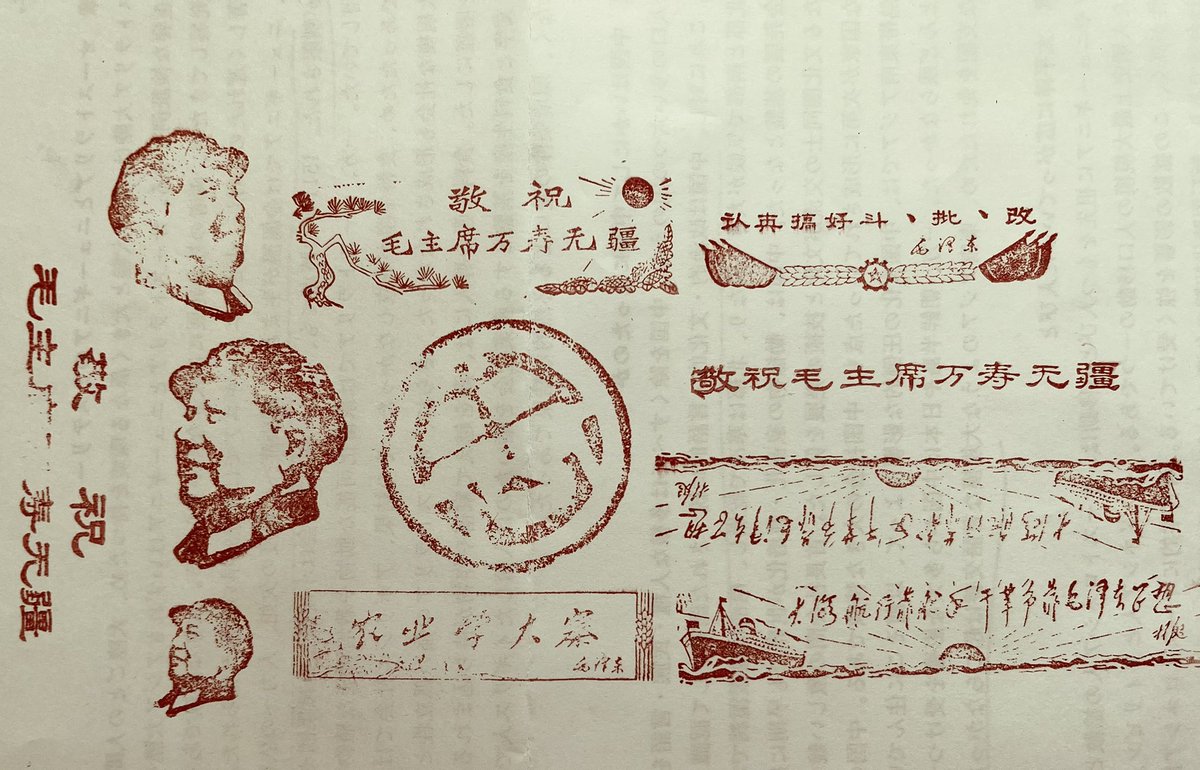 敬祝
毛主席万寿无疆
敬祝
毛主席万寿无疆
认真搞好斗、批、改
毛泽东
敬祝毛主席万寿无疆
大海航行靠舵手干革命靠毛泽东思想
林彪
大海航行靠舵手干革命靠毛泽东思想
林彪
农业学大寨
毛泽东